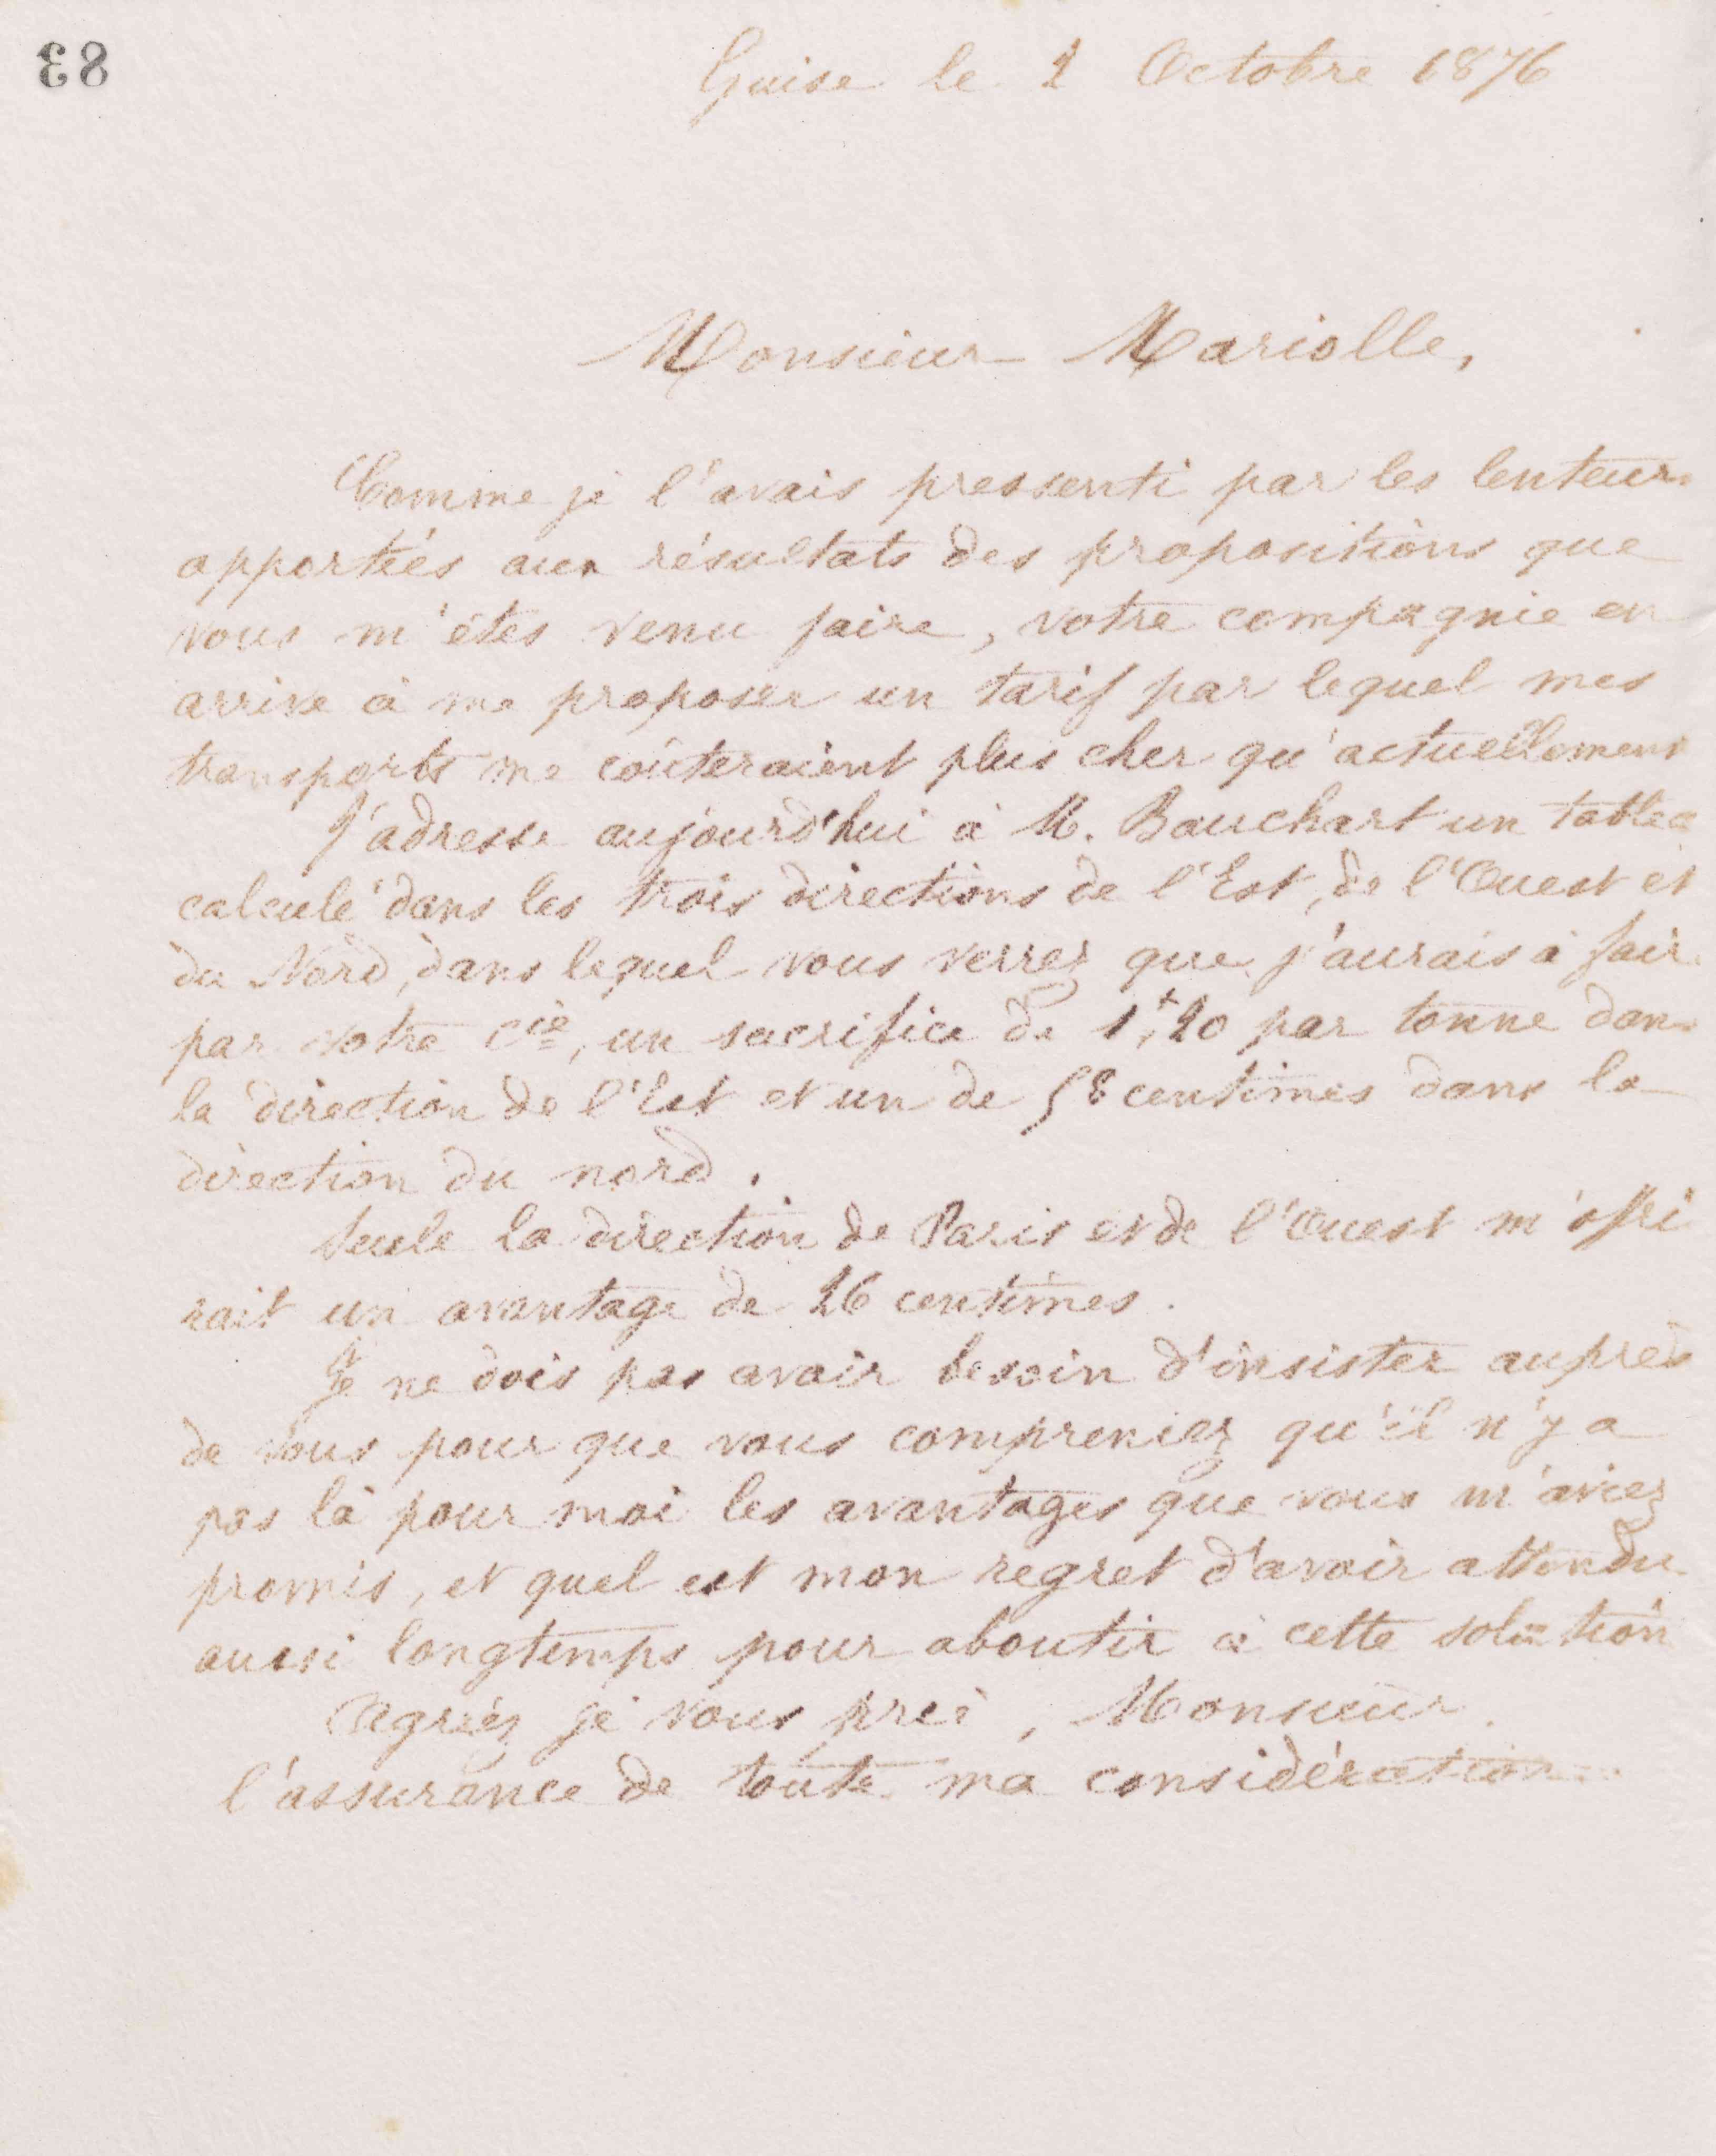 83
Guise le 2 Octobre 1876
Monsieur Mariolle,
Comme je l'avais pressenti par les lenteurs
apportées aux résultats des propositions que
vous m'êtes venu faire, votre compagnie en
arrive à me proposer un tarif par lequel mes
transports me coûteraient plus cher qu'actuellement
J'adresse aujourd'hui à M. Bauchart un tablea
calculé dans les trois directions de l'Est, de l'Ouest et
du Nord, dans lequel vous verrez que j'aurais à fair
par votre Cie, un sacrifice de 1f,20 par tonne dans
la direction de l'Est et un de 58 centimes dans la
direction du nord.
Seule la direction de Paris et de l'Ouest m'offri
rait un avantage de 26 centimes.
Je ne dois pas avoir besoin d'insister auprès
de vous pour que vous compreniez qu'il n'y a
pas là pour moi les avantages que vous m'aviez
promis, et quel est mon regret d'avoir attendu
aussi longtemps pour aboutir à cette solution
Agréez je vous prie, Monsieur,
l'assurance de toute ma considération